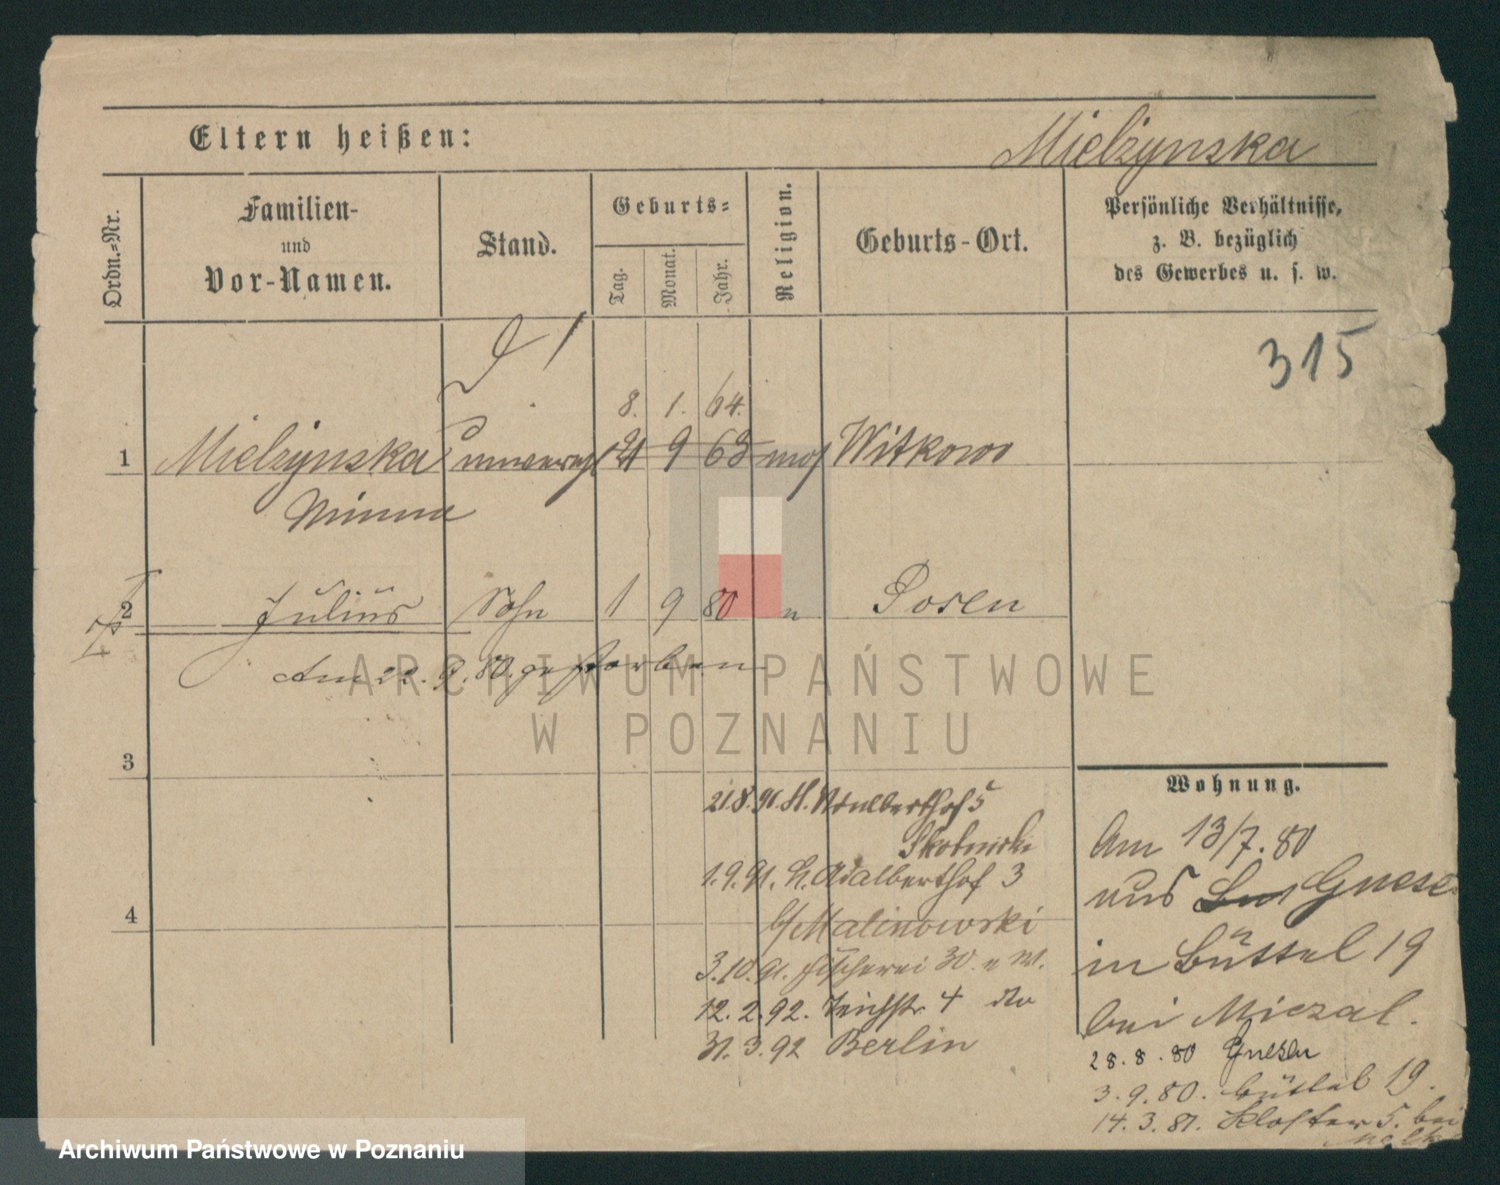 Eltern heißen:
Mielzynska
Ordn.=Nr.
Familien-
und
Vor-Namen.
Stand.
Geburts=
Tag.
Monat.
Jahr.
Religion.
Geburts-Ort.
Persönliche Verhältnisse,
z. B. bezüglich
des Gewerbes u. s. w.
315
8. 1. 64.
1 Mielzynska unverehl 21 9 63 mos Witkowo
Minna
2 Julius Sohn 1 9 80 " Posen
Am 22. 9. 80. gestorben
3
4
21.8.91. H. Adalberthof 5
Skotnicki
1.9.91. h. Adalberthof 3
b/ Malinowski
3.10.91. Fischerei 30. e W.
12.2.92. Teichstr. 4 dto
31.3.92 Berlin
Wohnung.
Am 13/7. 80
aus Gnesen
in Büttel 19
bei Miezal.
28.8.80 Gnesen
3.9.80. Büttel 19.
14.3.81. Kloster 5. bei
ARCHIWUM PAŃSTWOWE
W POZNANIU
Archiwum Państwowe w Poznaniu